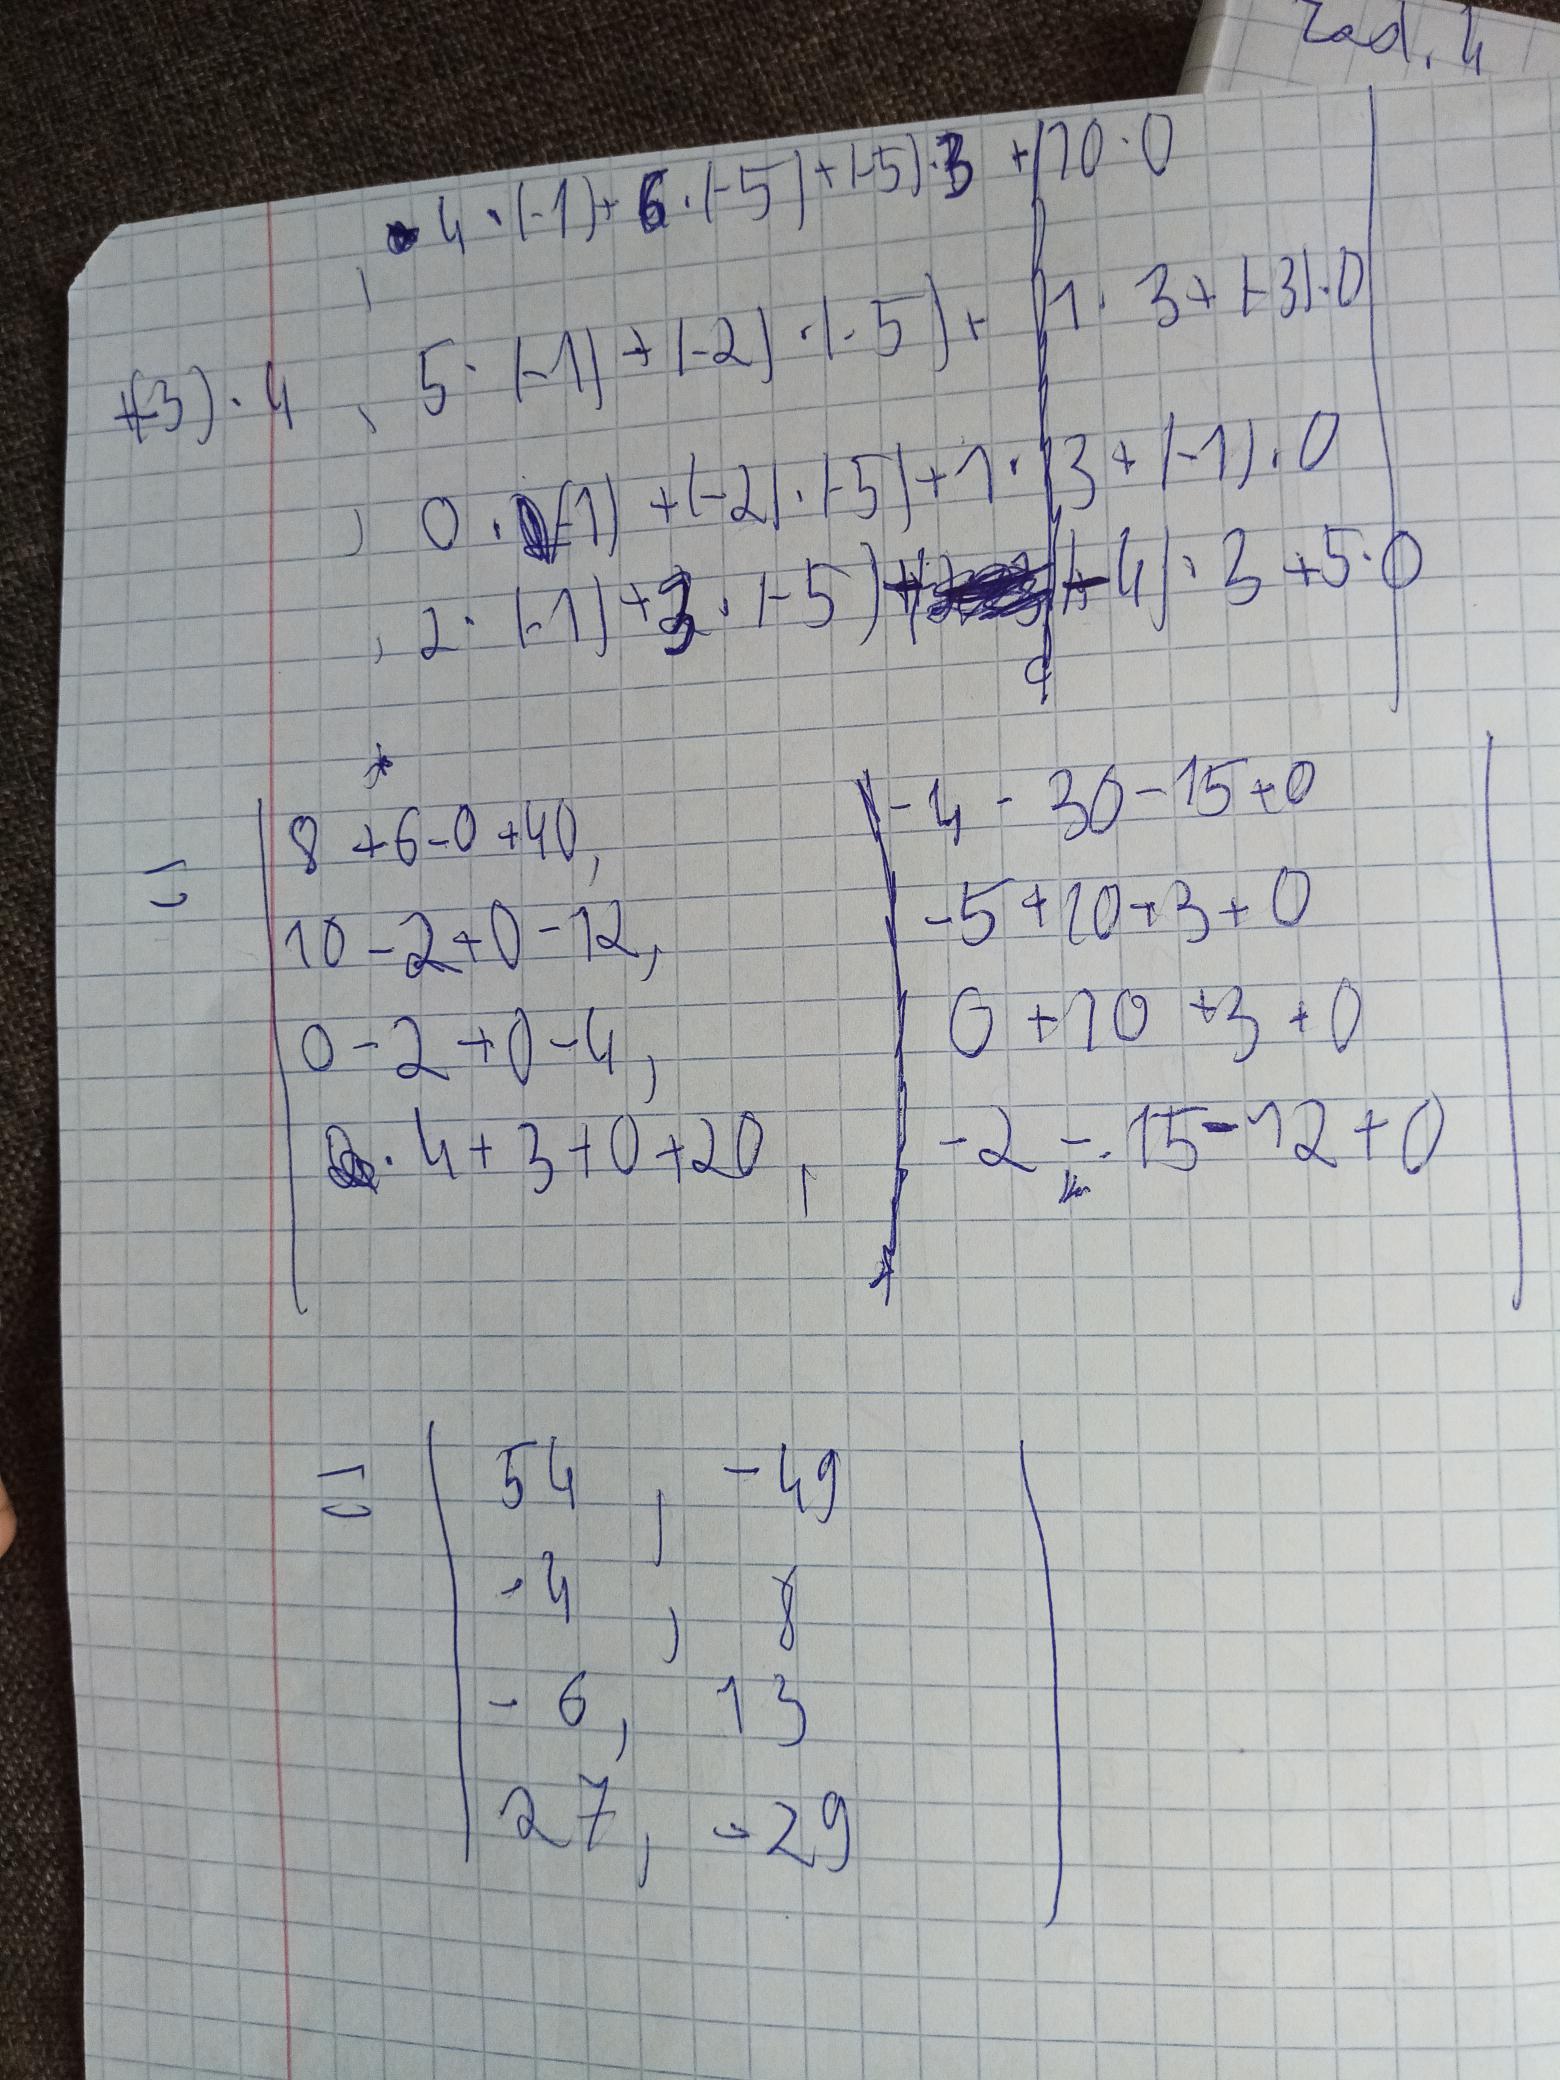 Zad. 4
4 · (-1) + 6 · (-5) + (-5) · 3 + 10 · 0
+(-3) · 4 , 5 · (-1) + (-2) · (-5) + 1 · 3 + (-3) · 0
, 0 · (-1) + (-2) · (-5) + 1 · 3 + (-1) · 0
, 2 · (-1) + 3 · (-5) + (-4) · 3 + 5 · 0
= | 8 + 6 - 0 + 40, | -4 - 30 - 15 + 0 |
10 - 2 + 0 - 12, -5 + 10 + 3 + 0
0 - 2 + 0 - 4, 0 + 10 + 3 + 0
4 + 3 + 0 + 20, -2 - 15 - 12 + 0
= | 54 , -49 |
-4 , 8
-6 , 13
27 , -29